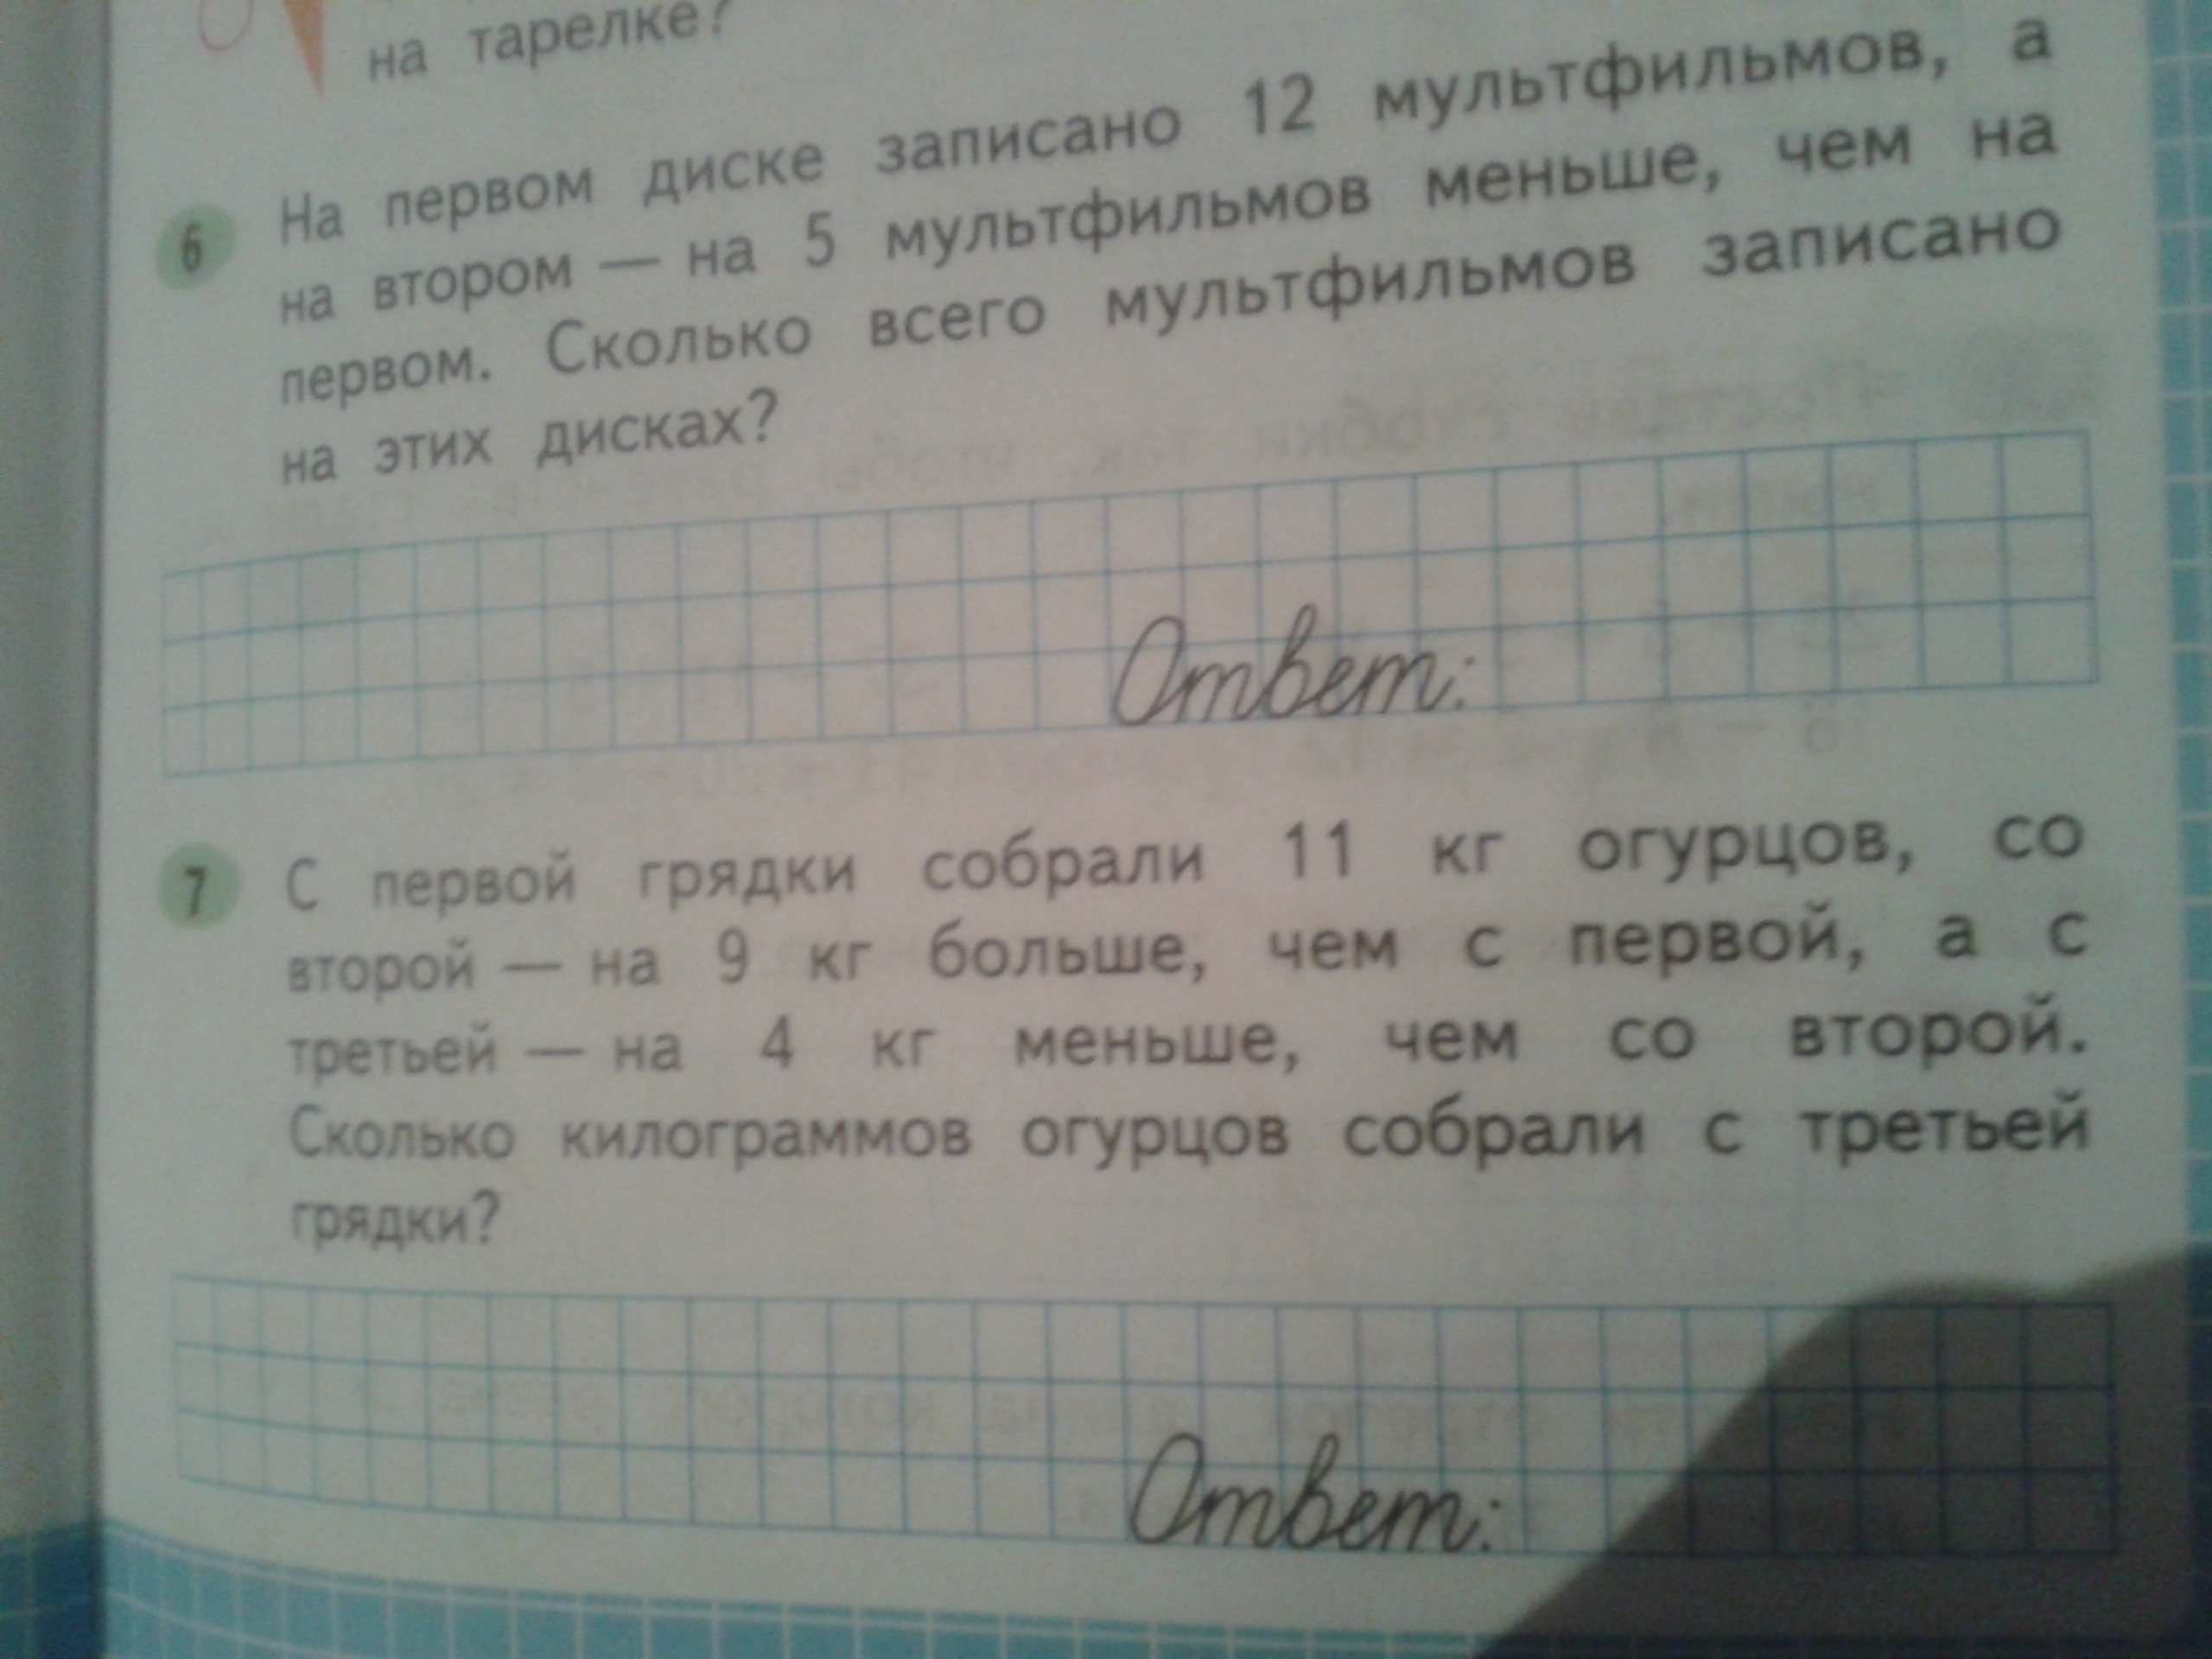 на тарелке?
6 На первом диске записано 12 мультфильмов, а
на втором — на 5 мультфильмов меньше, чем на
первом. Сколько всего мультфильмов записано
на этих дисках?
Ответ:
7 С первой грядки собрали 11 кг огурцов, со
второй — на 9 кг больше, чем с первой, а с
третьей — на 4 кг меньше, чем со второй.
Сколько килограммов огурцов собрали с третьей
грядки?
Ответ: